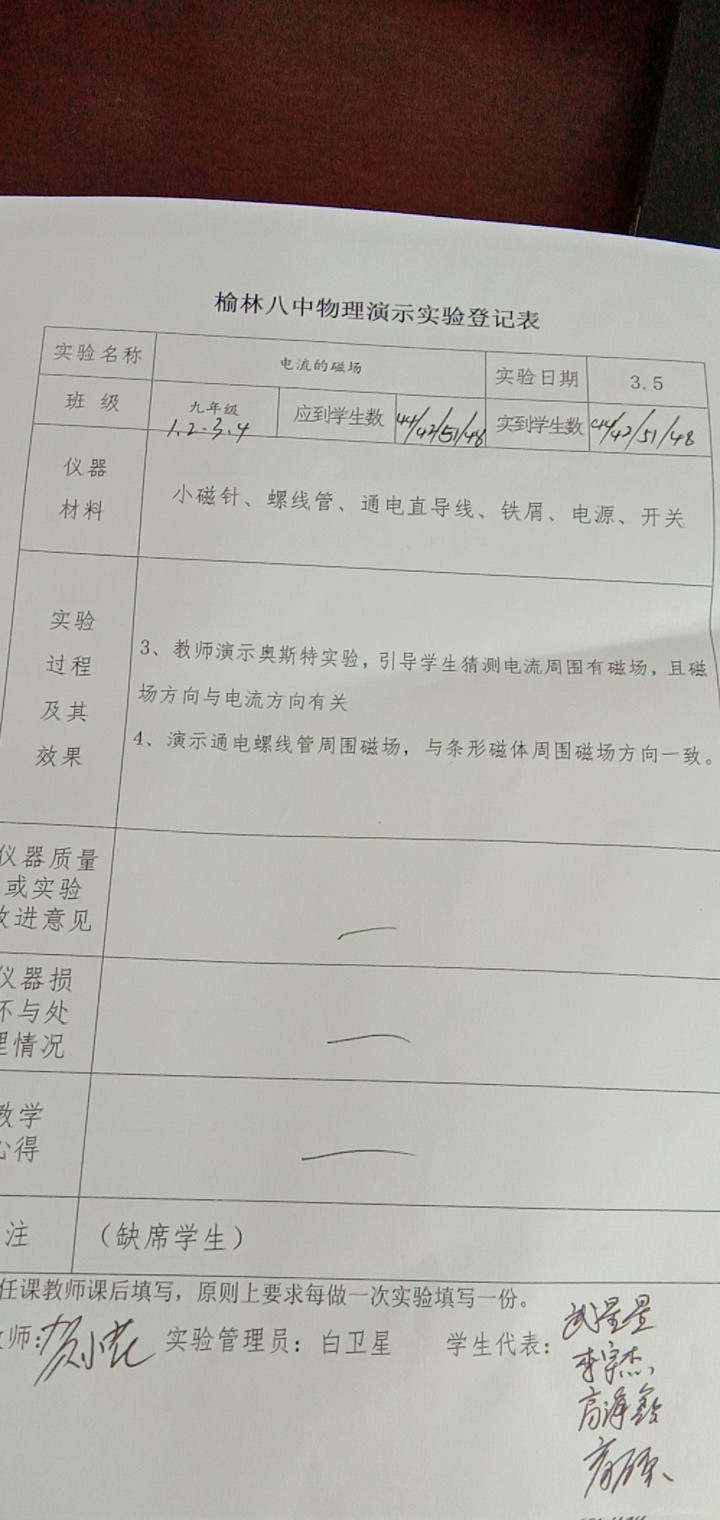 榆林八中物理演示实验登记表
实验名称 电流的磁场 实验日期 3.5
班 级 九年级 1.2.3.4 应到学生数 44/42/51/48 实到学生数 44/42/51/48
仪器
材料
小磁针、螺线管、通电直导线、铁屑、电源、开关
实验
过程
及其
效果
3、教师演示奥斯特实验，引导学生猜测电流周围有磁场，且磁
场方向与电流方向有关
4、演示通电螺线管周围磁场，与条形磁体周围磁场方向一致。
仪器质量
或实验
改进意见
—
仪器损
坏与处
理情况
—
教学
心得
—
注 （缺席学生）
任课教师课后填写，原则上要求每做一次实验填写一份。
师： 实验管理员：白卫星 学生代表：